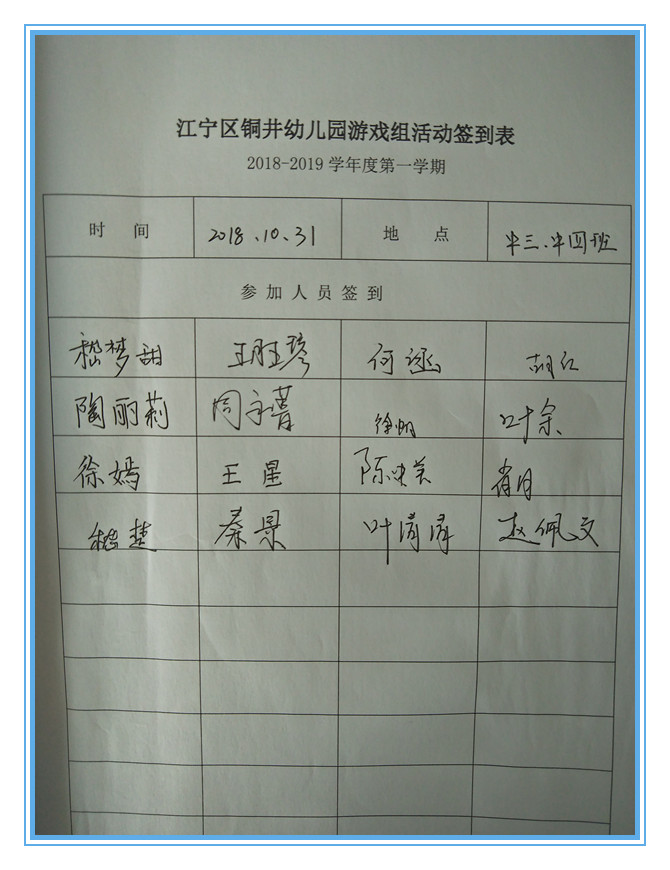 江宁区铜井幼儿园游戏组活动签到表
2018-2019 学年度第一学期
时 间 2018、10、31 地 点 中三、中四班
参加人员签到
嵇梦甜 王胜琴 何函 胡红
陶丽莉 周永菁 徐帆 叶余
徐嫣 王星 陈 肖月
嵇楚 秦景 叶清清 赵佩文